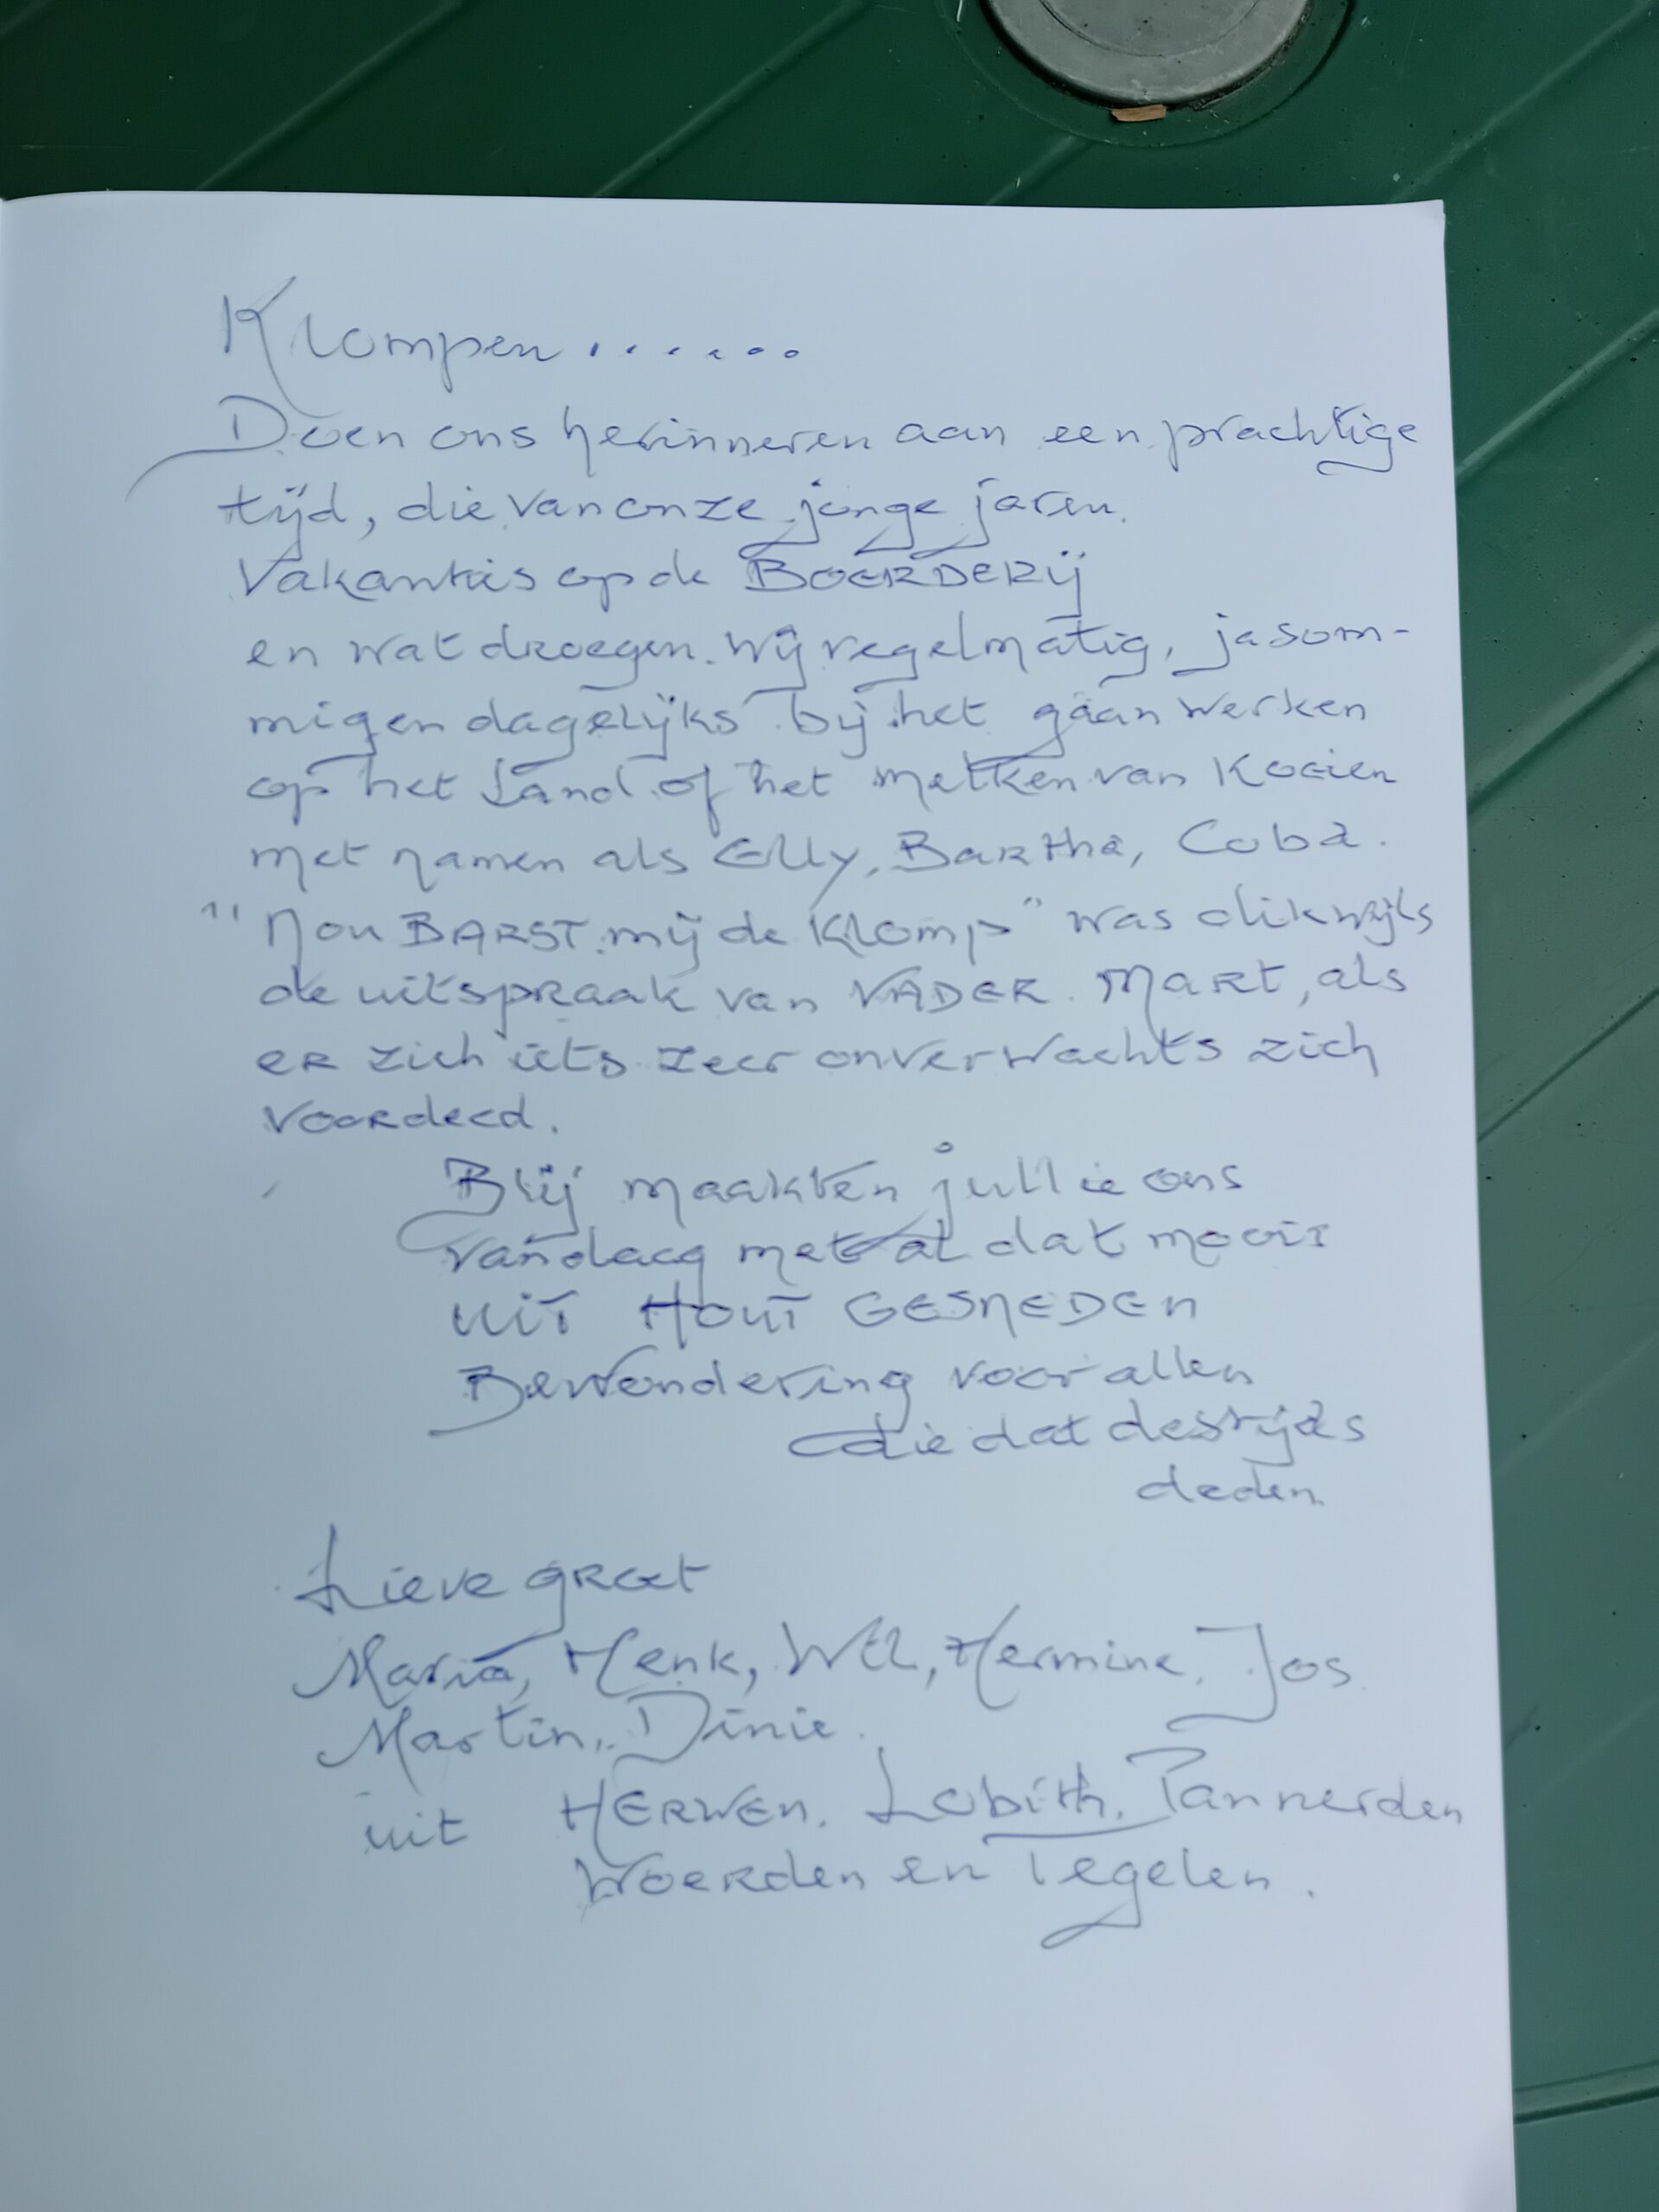 Klompen .......
Doen ons herinneren aan een prachtige
tijd, die van onze jonge jaren.
Vakanties op de BOERDERIJ
en wat droegen wij regelmatig, ja som-
migen dagelijks bij het gaan werken
op het Land of het melken van Koeien
met namen als Elly, Bartha, Coba.
"Nou BARST mij de Klomp" was dikwijls
de uitspraak van VADER Mart, als
er zich iets zeer onverwachts zich
voordeed.
Blij maakten jullie ons
vandaag met al dat moois
UIT HOUT GESNEDEN
Bewondering voor allen
die dat destijds
deden
Lieve groet
Maria, Henk, Wil, Hermine, Jos
Martin, Dinie.
uit HERWEN, Lobith, Pannerden
Woerden en Tegelen.